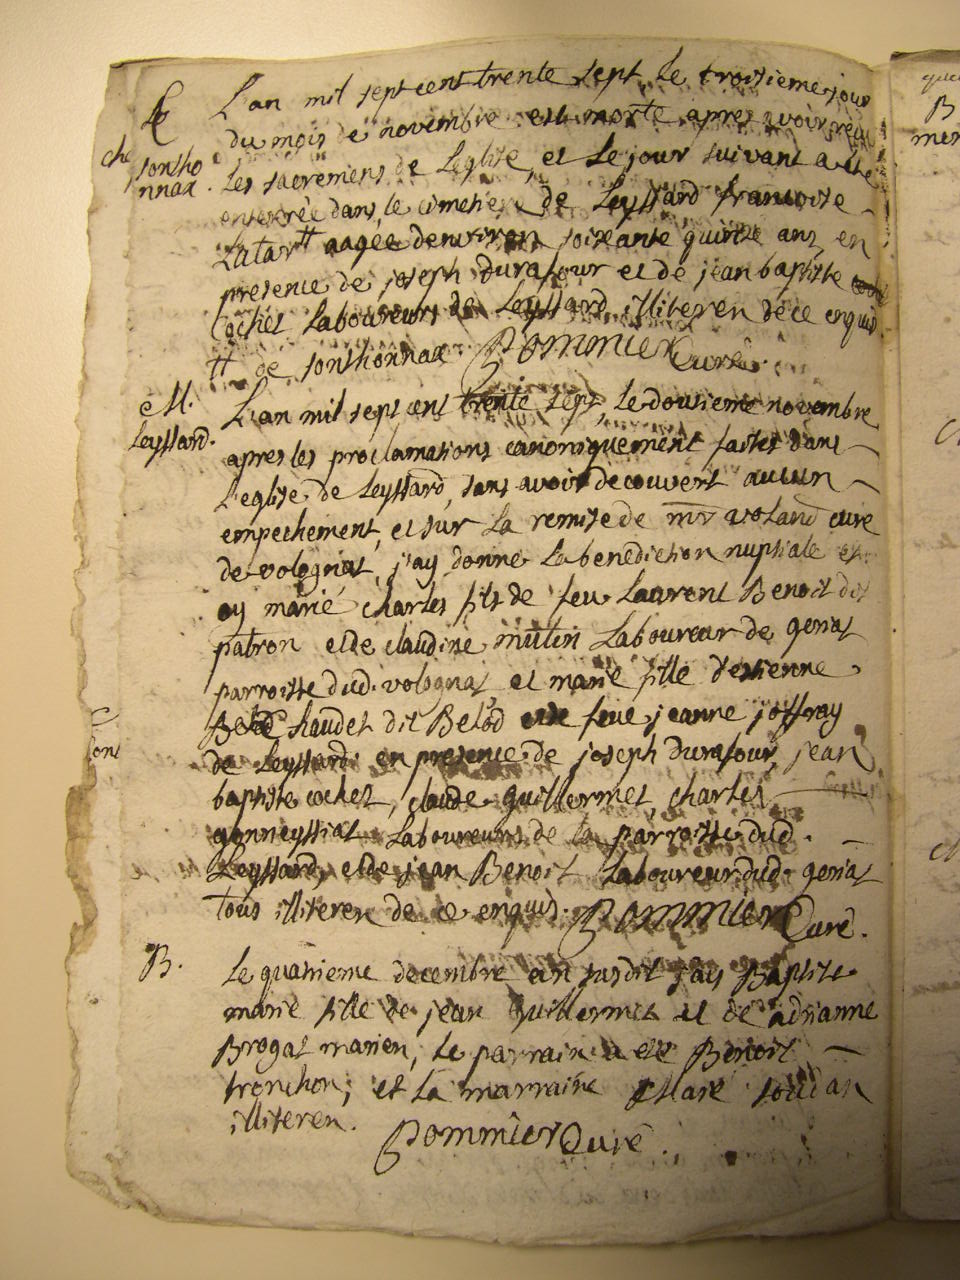 L'an mil sept cent trente sept le troitieme jour
du mois de novembre est morte apres avoir reçu
sontho
nnax.
Les sacremens de Leglise, et Le jour suivant a ete
enterrée dans le cimetiere de Leyssard francoise
Latar ++ aagée denviron soixante quinze ans en
presence de joseph durafour et de jean baptiste
Cochet Laboureurs de Leyssard illiteren de ce enquis
++ de sonthonnax. Pommier Curé.
M.
Leyssard.
L'an mil sept cent trente sept, le dousieme novembre
apres les proclamations canoniquement faites dans
L'eglise de Leyssard, sans avoir decouvert aucun
empechement, et sur La remise de mr voland curé
de volognat, j'ay donné La benediction nuptiale et
ay marié charles fils de feu Laurent Benoit dit
patron et de claudine mutin Laboureur de geniat
parroisse dud. volognat, et marie fille d'estienne
chaudet dit Belod et de feue jeanne joffray
de Leyssard: en presence de joseph durafour, jean
baptiste cochet, claude guillermet, charles
gonneyssiat Laboureurs de la parroisse dud.
Leyssard, et de jean Benoit Laboureur dud. geniat
tous illiteren de ce enquis. Pommier Curé.
B.
Le quatrieme decembre an susdit j'ay Baptisé
marie fille de jean Guillermet et de adrianne
Brogat marien; Le parrain a eté Benoit
tronchon; et La marraine Clare soudan
illiteren.
Pommier Curé.